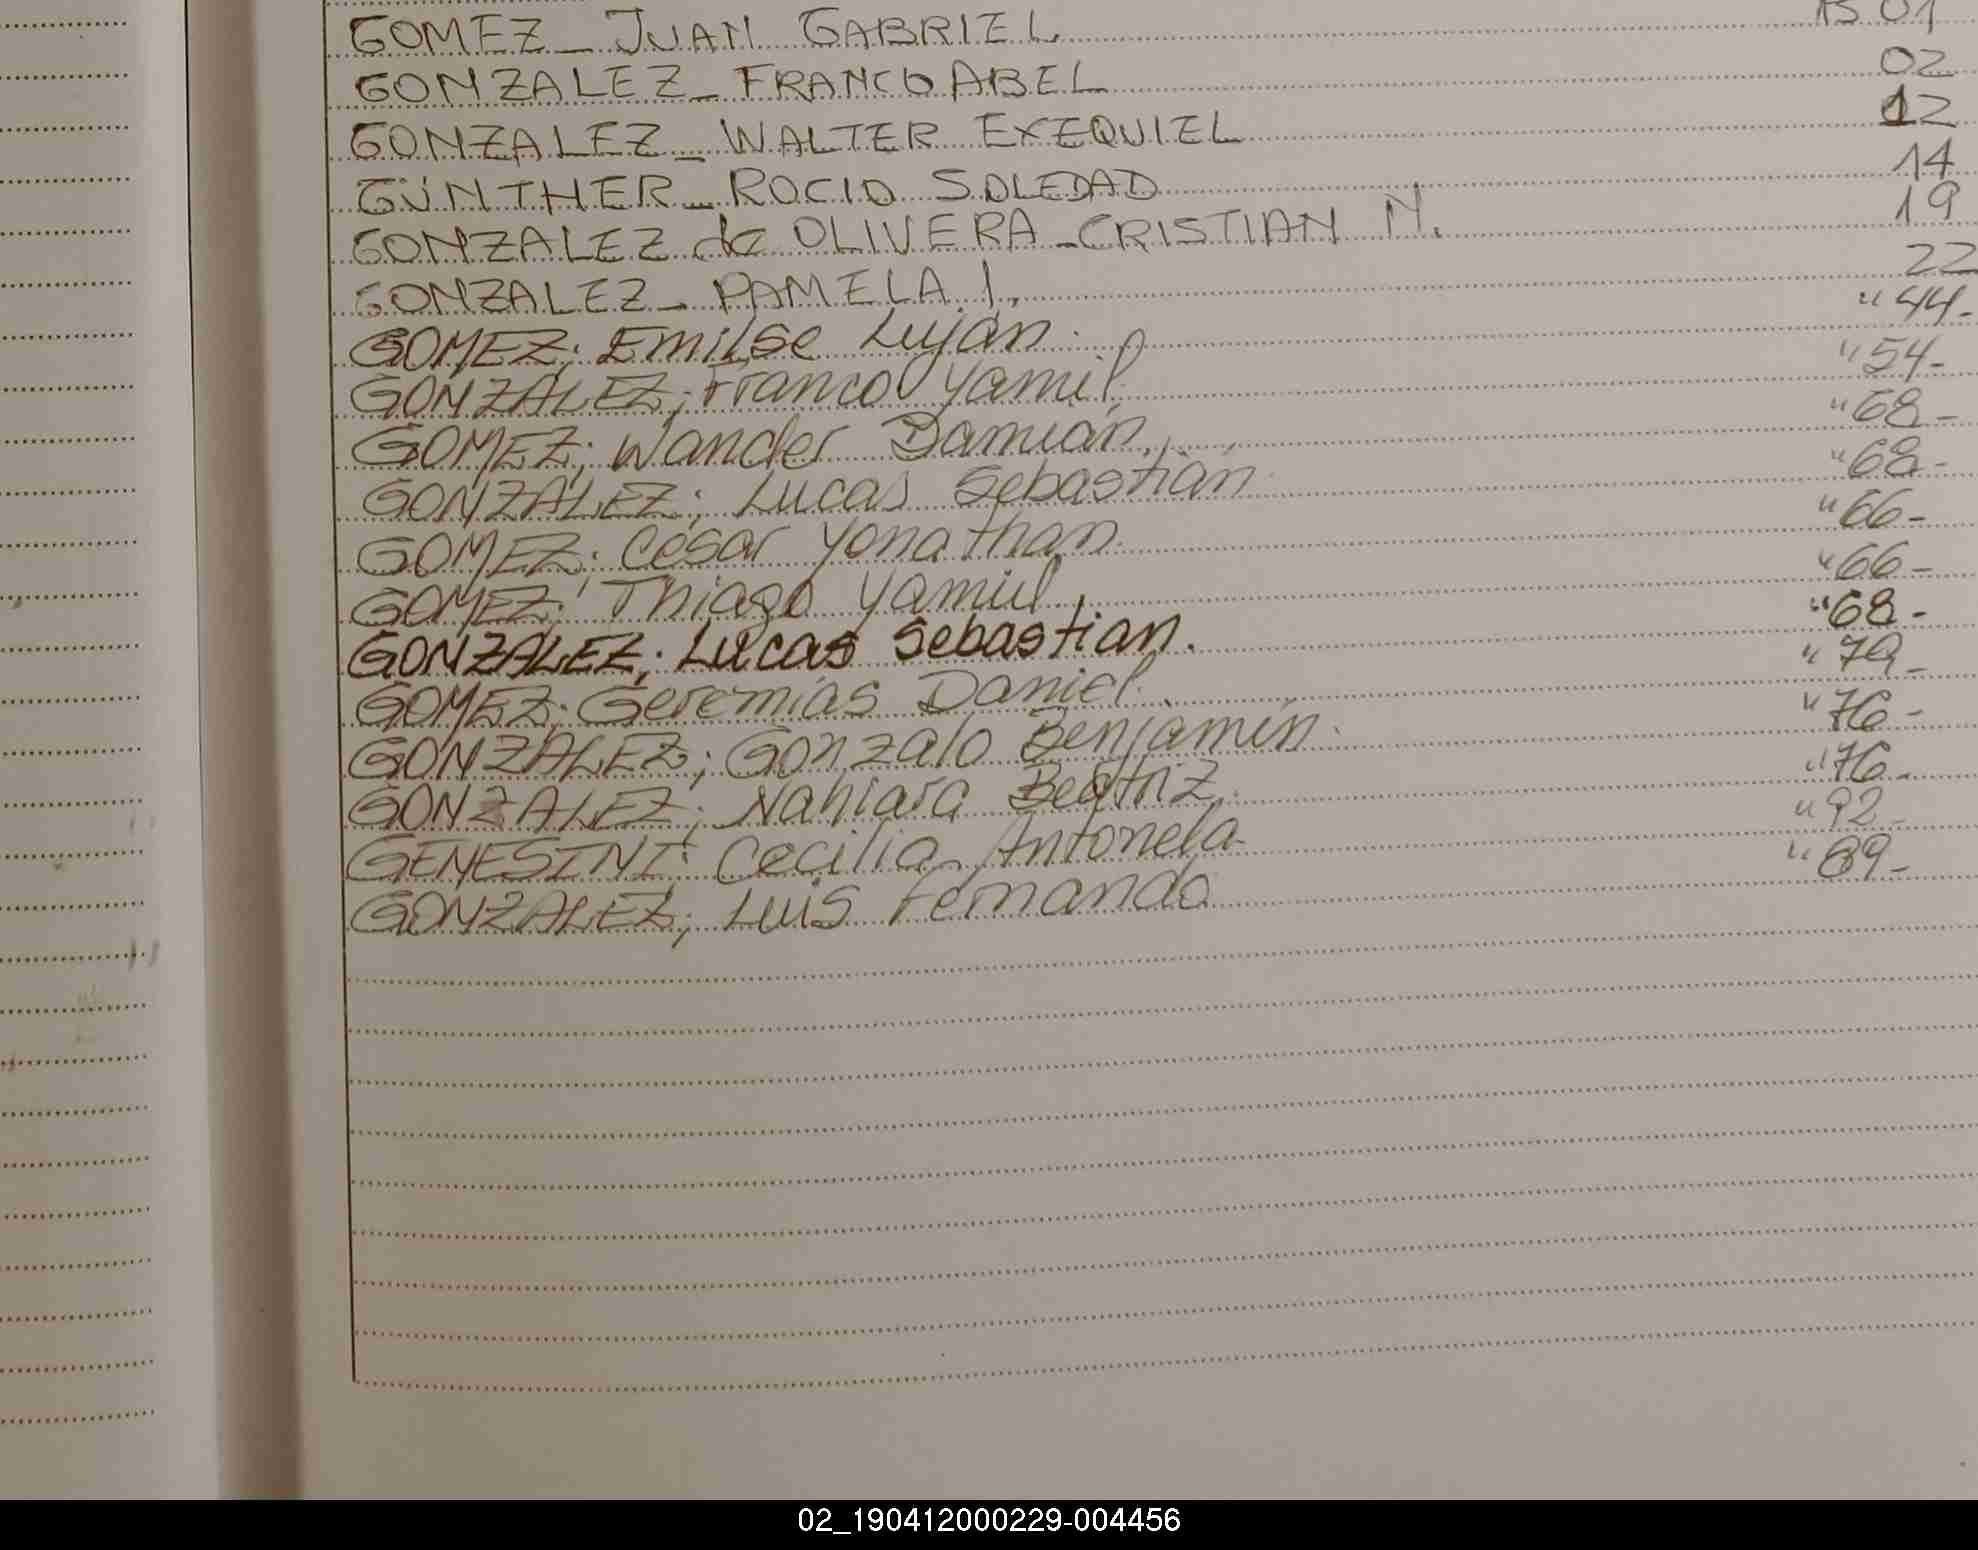 GOMEZ_ JUAN GABRIEL 01
GONZALEZ_ FRANCO ABEL 02
GONZALEZ_ WALTER EXEQUIEL 12
GÜNTHER_ ROCIO SOLEDAD 14
GONZALEZ de OLIVERA_CRISTIAN N. 19
GONZALEZ_ PAMELA I. 22
GOMEZ; Emilse Luján. " 44-
GONZALEZ; Franco Yamil. " 54-
GOMEZ; Wander Damián. " 68-
GONZALEZ; Lucas Sebastián " 68-
GOMEZ; Cesar Yonathan. " 66-
GOMEZ; Thiago Yamiul. " 66-
GONZALEZ; Lucas Sebastian. " 68-
GOMEZ; Geremías Daniel. " 79-
GONZALEZ; Gonzalo Benjamín. " 76-
GONZALEZ; Nahiara Beatriz. " 76-
GENESINI; Cecilia Antonela " 92-
GONZALEZ; Luis Fernando " 89-
02_190412000229-004456